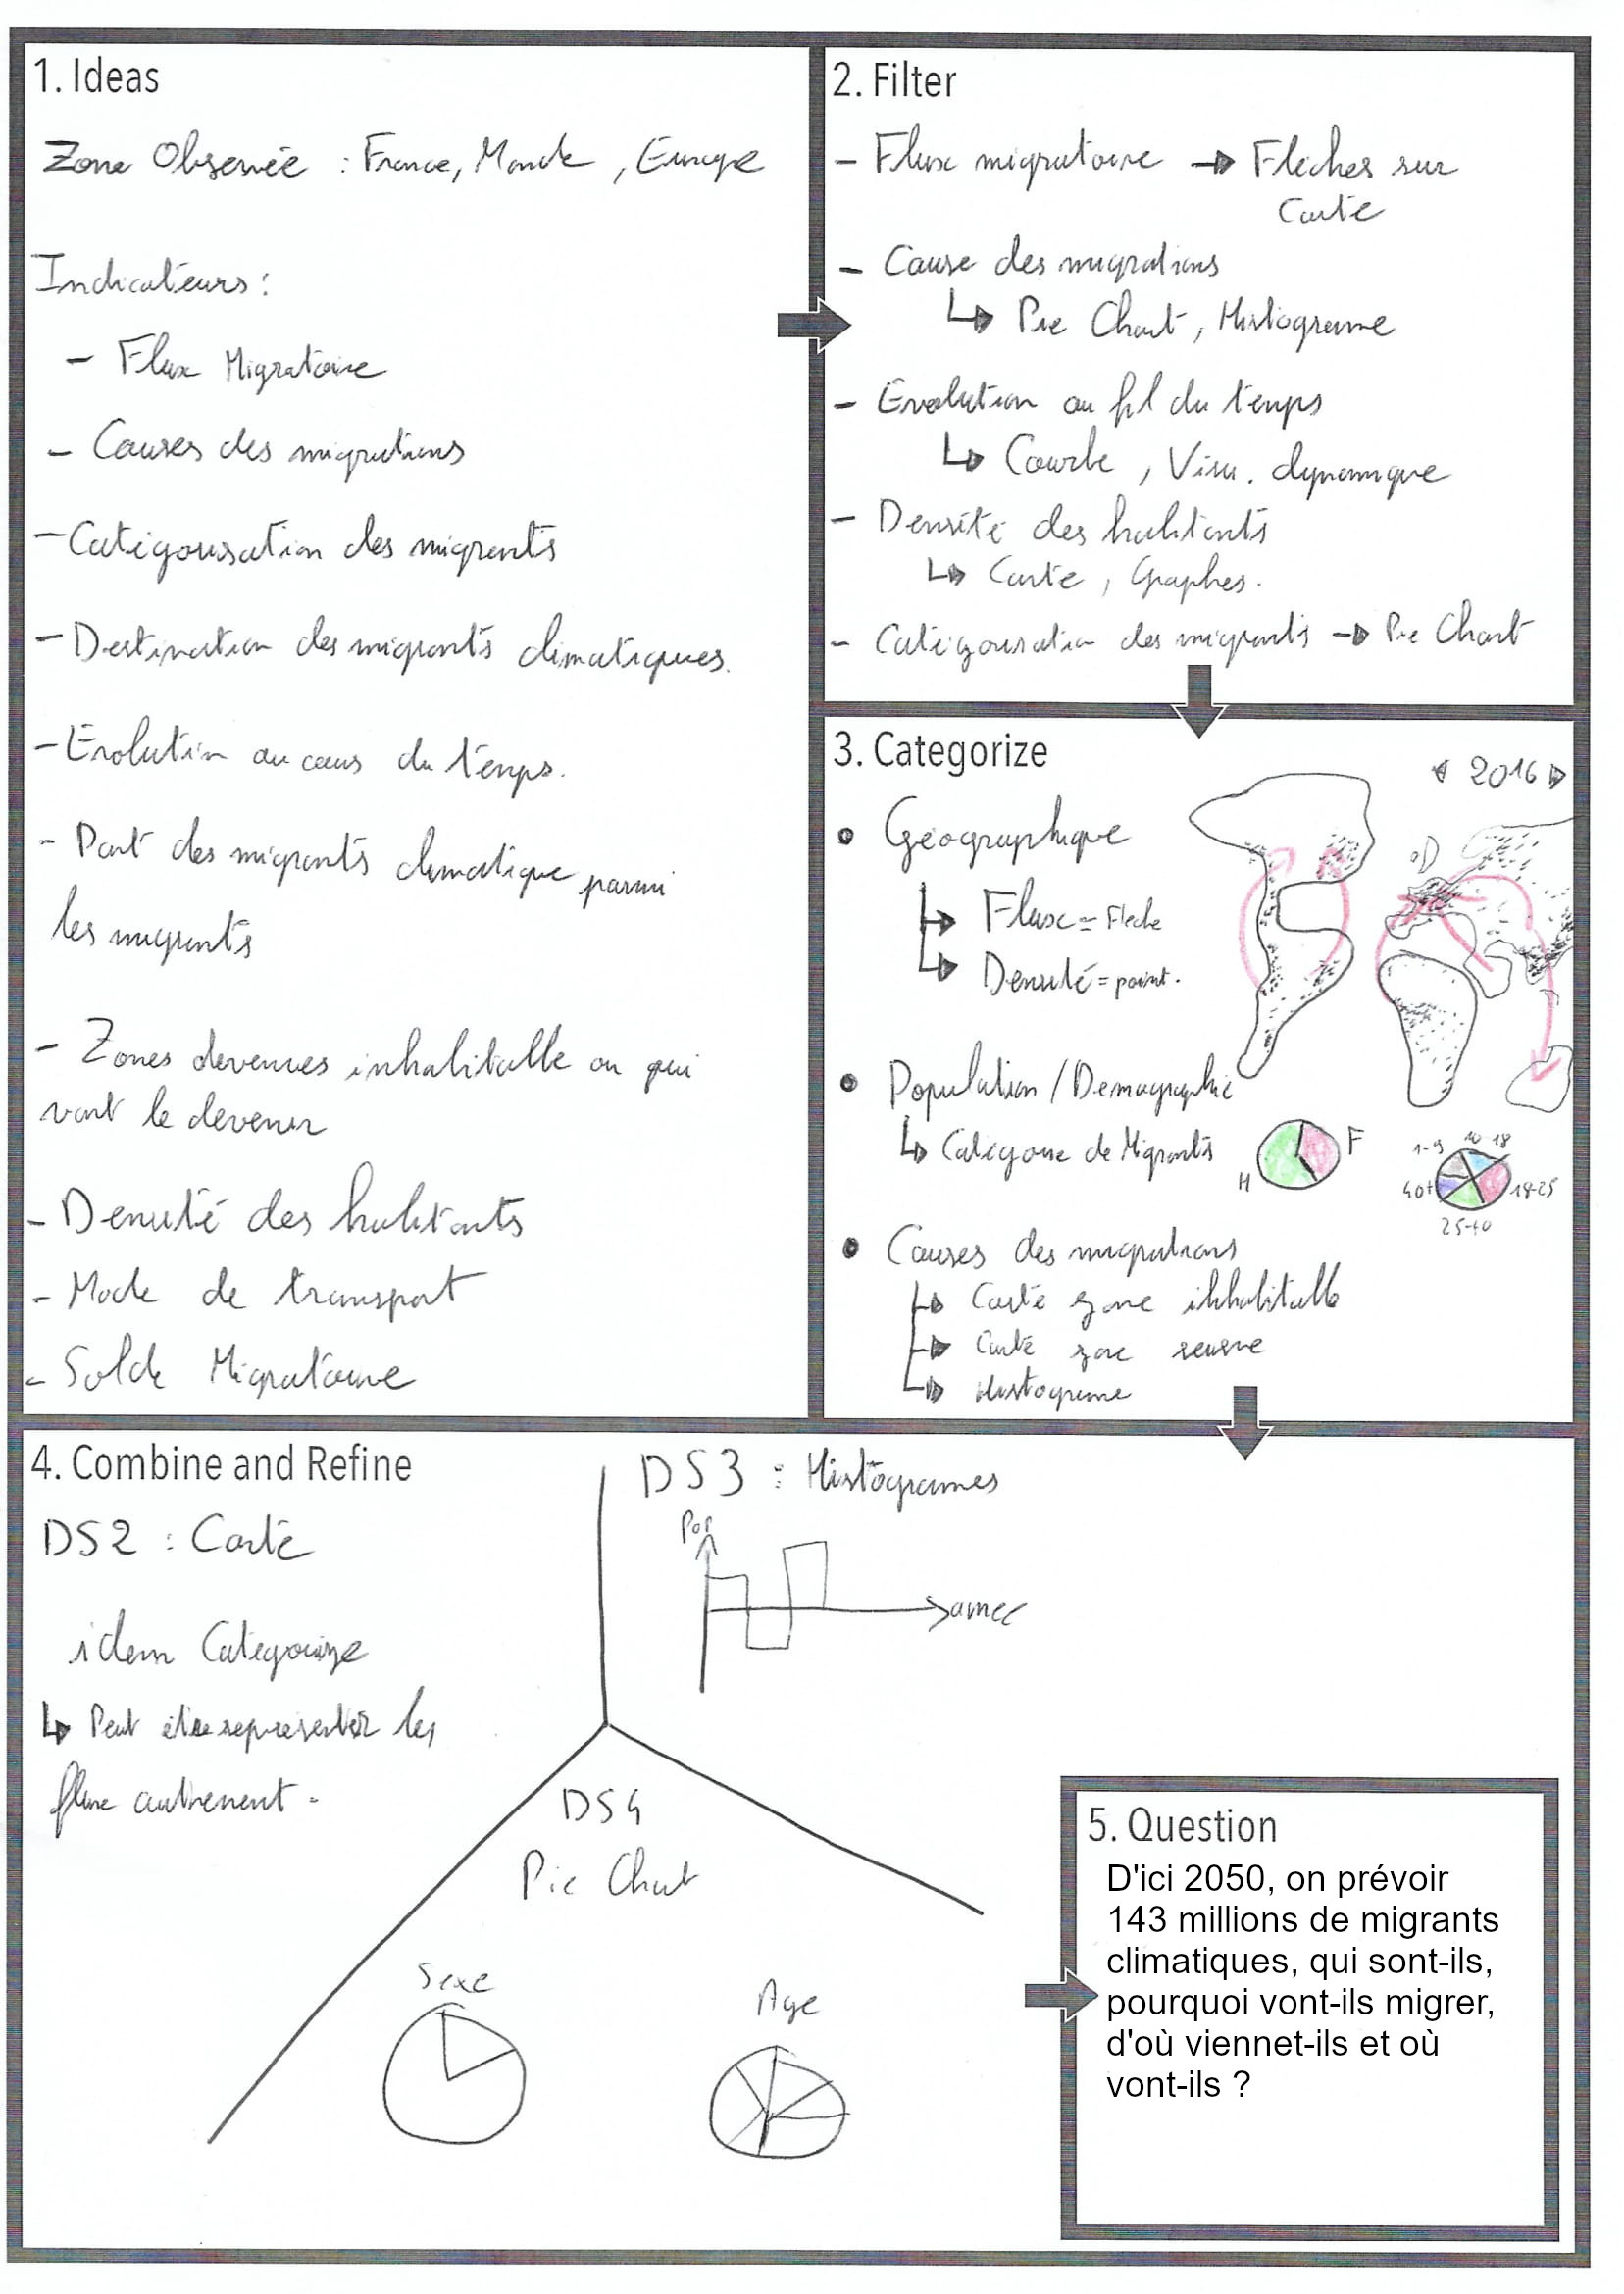 1. Ideas
Zone Observée : France, Monde, Europe
Indicateurs :
- Flux Migratoire
- Causes des migrations
- Catégorisation des migrants
- Destination des migrants climatiques.
- Evolution au cours du temps.
- Part des migrants climatique parmi
les migrants
- Zones devenues inhabitable ou qui
vont le devenir
- Densité des habitants
- Mode de transport
- Solde Migratoire
2. Filter
- Flux migratoire → Flèches sur
Carte
- Cause des migrations
↳ Pie Chart, Histograme
- Evolution au fil du temps
↳ Courbe, Visu. dynamique
- Densité des habitants
↳ Carte, Graphes.
- Catégorisation des migrants → Pie Chart
3. Categorize
◁ 2016 ▷
• Géographique
↳ Flux = Fleche
↳ Densité = point.
• Population / Demographie
↳ Catégorie de Migrants
H F
1-9 10 18
40+ 18-25
25-40
• Causes des migrations
↳ Carte zone inhabitable
↳ Carte zone
↳ Histograme
4. Combine and Refine
DS2 : Carte
idem Catégorize
↳ Peut être représenter les
flux autrement.
DS3 : Histogrames
Pop
année
DS4
Pie Chart
Sexe
Age
5. Question
D'ici 2050, on prévoir
143 millions de migrants
climatiques, qui sont-ils,
pourquoi vont-ils migrer,
d'où viennet-ils et où
vont-ils ?